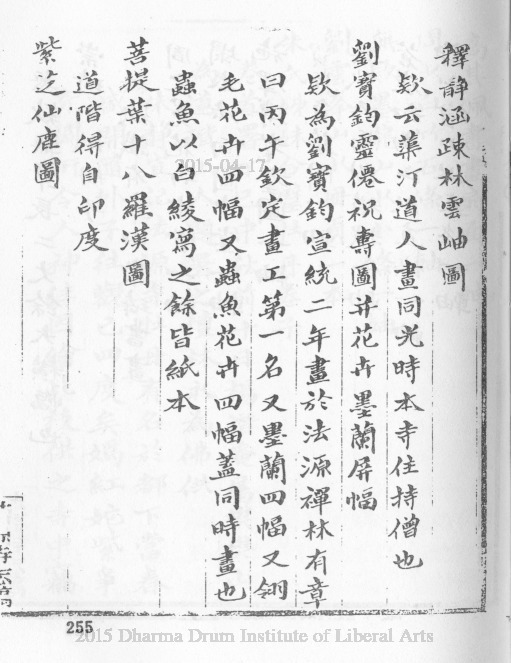 釋靜涵疎林雲岫圖
欵云藻汀道人畫同光時本寺住持僧也
劉寶鈞靈僊祝壽圖幷花卉墨蘭屏幅
欵爲劉寶鈞宣統二年畫於法源禪林有章
曰丙午欽定畫工第一名又墨蘭四幅又翎
毛花卉四幅又蟲魚花卉四幅蓋同時畫也
蟲魚以白綾寫之餘皆紙本
菩提葉十八羅漢圖
道階得自印度
紫芝仙鹿圖
2015-04-17
255
2015 Dharma Drum Institute of Liberal Arts